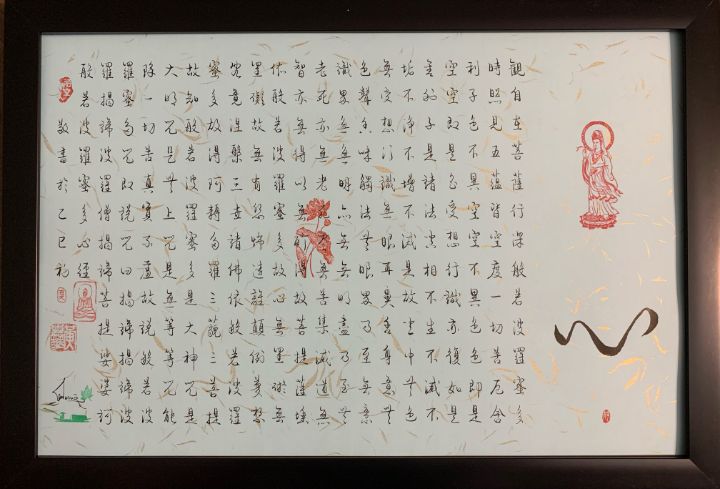 心
觀自在菩薩行深般若波羅蜜多
時照見五蘊皆空度一切苦厄舍
利子色不異空空不異色色即是
空空即是色受想行識亦復如是
舍利子是諸法空相不生不滅不
垢不淨不增不減是故空中無色
無受想行識無眼耳鼻舌身意無
色聲香味觸法無眼界乃至無意
識界無無明亦無無明盡乃至無
老死亦無老死盡無苦集滅道無
智亦無得以無所得故菩提薩埵
依般若波羅蜜多故心無罣礙無
罣礙故無有恐怖遠離顛倒夢想
究竟涅槃三世諸佛依般若波羅
蜜多故得阿耨多羅三藐三菩提
故知般若波羅蜜多是大神咒是
大明咒是無上咒是無等等咒能
除一切苦真實不虛故說般若波
羅蜜多咒即說咒曰揭諦揭諦波
羅揭諦波羅僧揭諦菩提娑婆訶
般若波羅蜜多心經
敬書於乙巳初夏